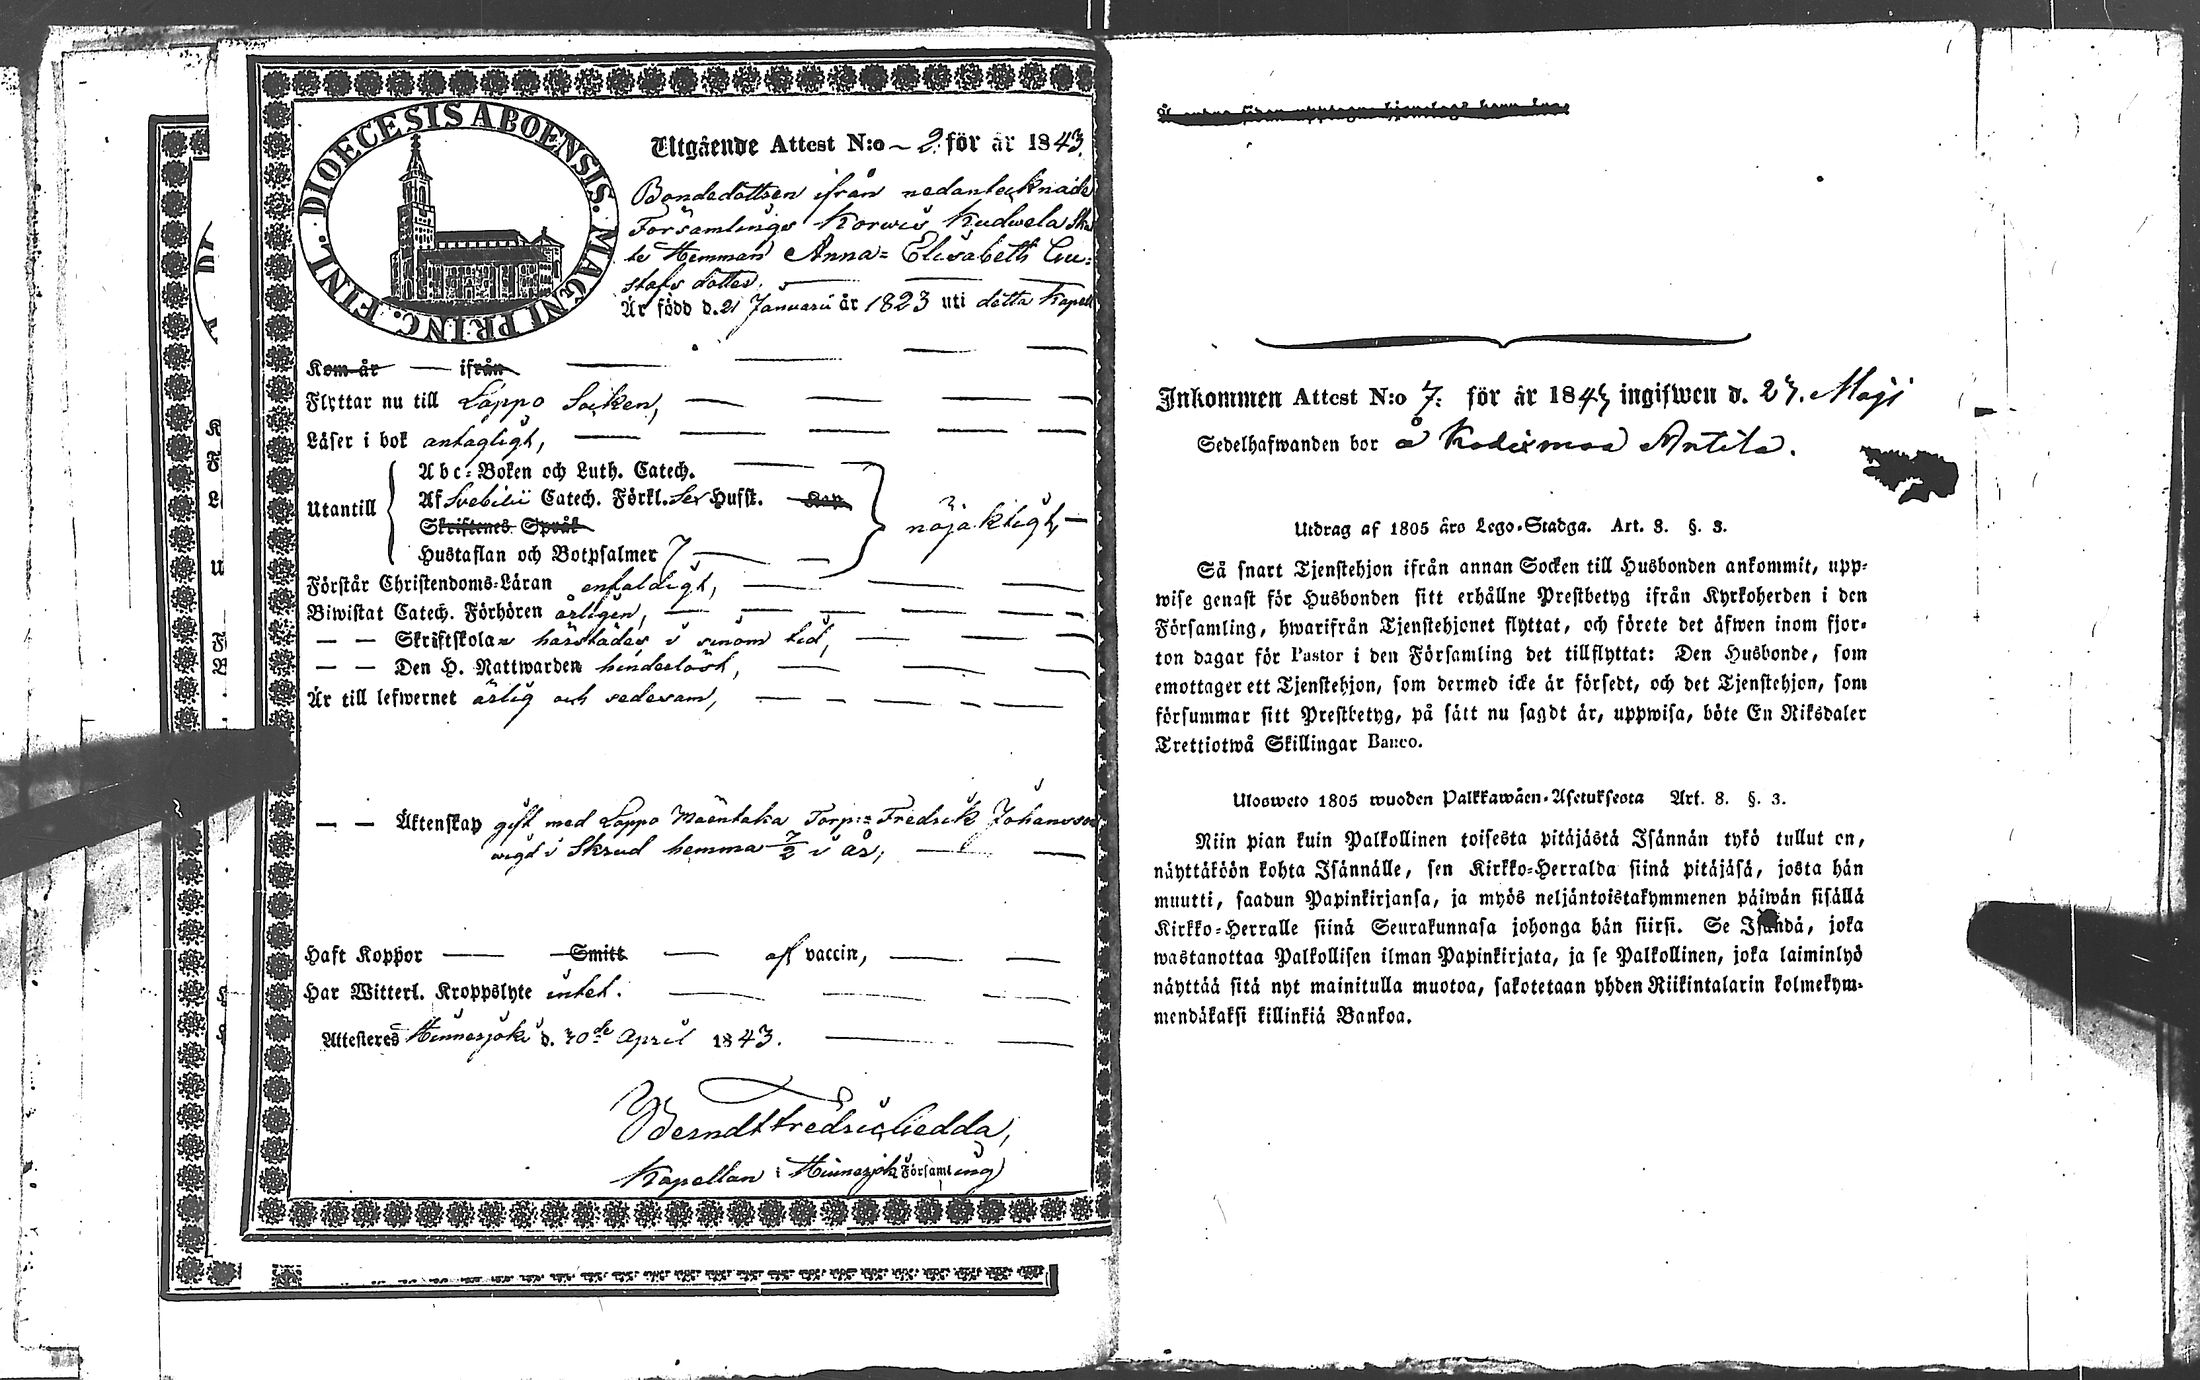 DIOECESIS ABOENSIS. MAGNI PRINC. FINL.
Utgående Attest N:o 2. för år 1843.
Bondedottren ifrån nedantecknade
Församlings Korwis Kudwela Skat
te Hemman Anna=Elisabeth Gu=
stafs dotter.
Är född d. 21 Januarii år 1823 uti detta Kapell
Kom år — ifrån
Flyttar nu till Lappo Socken,
Läser i bok antagligt,
Utantill
Abc=Boken och Luth. Catech.
Af Svebilii Catech. Förkl. Sex Hufst. Kap
Skriftenes Språk
Hustaflan och Botpsalmer 7
nöjaktigt,
Förstår Christendoms=Läran enfaldigt,
Biwistat Catech. Förhören årligen,
— — Skriftskolan härstädes i sinom tid,
— — Den H. Nattwarden hinderlöst,
Är till lefwernet ärlig och sedesam,
— — Äktenskap gift med Lappo Mäentaka Torp: Fredrik Johansson
wigd i Skrud hemma 7/2 i år,
Haft Koppor — Smitt — af vaccin,
Har Witterl. Kroppslyte intet.
Attesteres Hinnerjoki d. 30de April 1843.
Berndt Fredric Gedda,
Kapellan i Hinnerjoki Församling
Inkommen Attest N:o 7. för år 1843 ingifwen d. 27. Maji
Sedelhafwanden bor å Kodixmaa Antila.
Utdrag af 1805 års Lego-Stadga. Art. 8. §. 3.
Så snart Tjenstehjon ifrån annan Socken till Husbonden ankommit, upp=
wise genast för Husbonden sitt erhållne Prestbetyg ifrån Kyrkoherden i den
Församling, hwarifrån Tjenstehjonet flyttat, och förete det äfwen inom fjor-
ton dagar för Pastor i den Församling det tillflyttat: Den Husbonde, som
emottager ett Tjenstehjon, som dermed icke är försedt, och det Tjenstehjon, som
försummar sitt Prestbetyg, på sätt nu sagdt är, uppwisa, böte En Riksdaler
Trettiotwå Skillingar Banco.
Ulosweto 1805 wuoden Palkkawäen-Asetuksesta Art. 8. §. 3.
Niin pian kuin Palkollinen toisesta pitäjästä Isännän tykö tullut on,
näyttäköön kohta Isännälle, sen Kirkko=Herralda siinä pitäjäsä, josta hän
muutti, saadun Papinkirjansa, ja myös neljäntoistakymmenen päiwän sisällä
Kirkko=Herralle siinä Seurakunnasa johonga hän siirsi. Se Isändä, joka
wastanottaa Palkollisen ilman Papinkirjata, ja se Palkollinen, joka laiminlyö
näyttää sitä nyt mainitulla muotoa, sakotetaan yhden Riikintalarin kolmekym-
mendäkaksi killinkiä Bankoa.